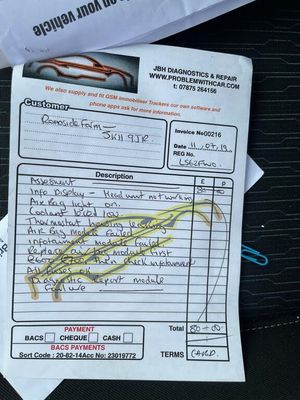 on your vehicle
JBH DIAGNOSTICS & REPAIR
WWW.PROBLEMWITHCAR.COM
t: 07875 264156
We also supply and fit GSM immobiliser Trackers our own software and
phone apps ask for more information.
Customer
Invoice No 00216
Romside Farm
SK11 9JR
Date 11/07/19
REG No.
LS62FWO
Description £ P
Assessment 80 00
Info Display - Head unit not working
Air Bag light on.
Coolant level low.
Thermostat housing leaking
Air Bag Module Failed
Infotainment module Failed
Replace air bag module First
then check infotainment
All Fuses ok
Diagnostic Report module
Failure
PAYMENT
BACS CHEQUE CASH
BACS PAYMENTS
Sort Code : 20-82-14 Acc No: 23019772
Total 80-00
TERMS CARD